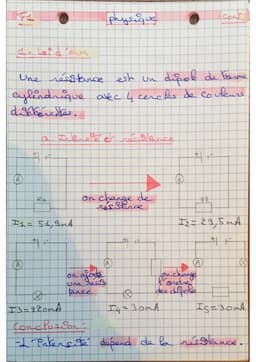 TP1 physique Cont
1. Loi d'ohm
Une résistance est un dipol de forme
cylindrique avec 4 cercles de couleurs
différentes.
a. Intensité et résistance
on change de
résistance
I1= 51,9mA I2= 29,5mA
on ajoute
une resis
tance
on change
l'ordre
des dipole
I3=220mA I4=30mA I5=30mA
Conclusion:
-L'intensité dépend de la résistance.